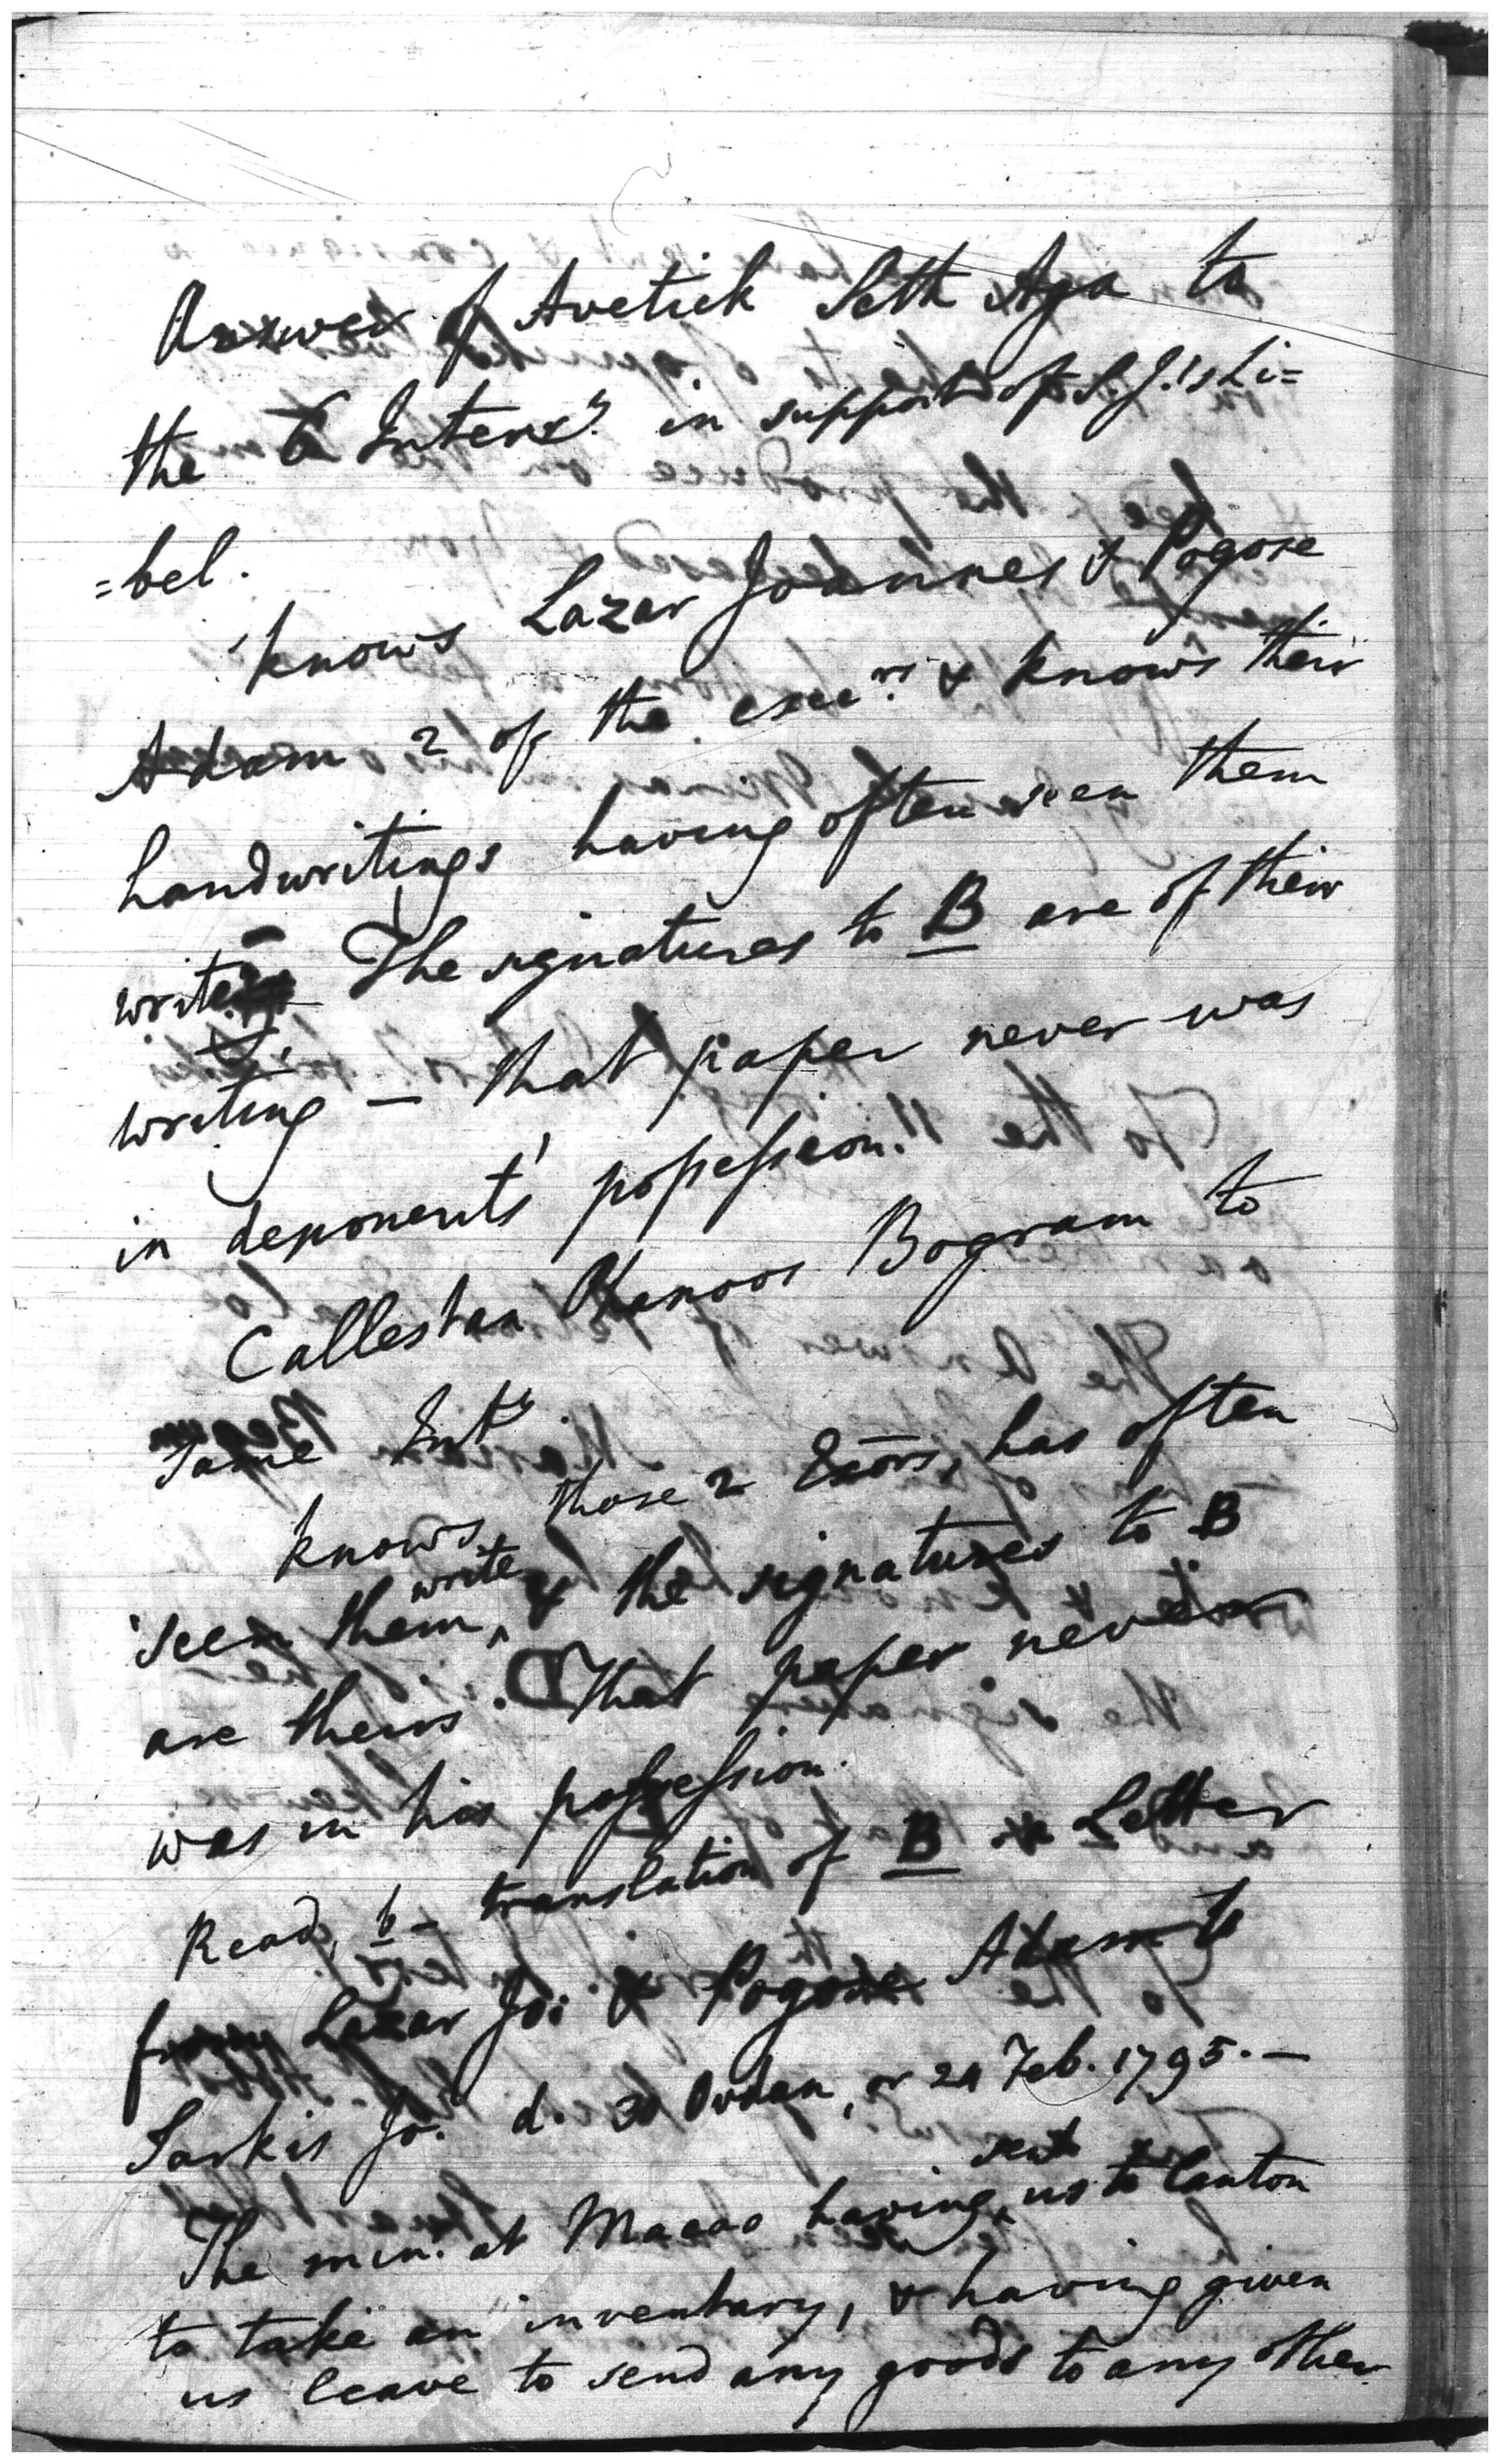 Answer of Avetick Seth Aga to
the 6 Interry in support of S. J.'s Li=
=bel.
knows Lazar Joannes & Pogose
Adam 2 of the execrs & knows their
handwritings having often seen them
write. The signatures to B are of their
writing — that paper never was
in deponents' possession.
Callestan Kanoos Bogram to
same Inty
knows those 2 Exōrs, has often
seen them write & the signatures to B
are theirs. That paper never
was in his possession.
Read, b — translation of B Letter
from Lazar Jo: & Pogose Adam to
Sarkis Jo. d. 30 Ovdan, or 24 Feb. 1795. —
The min. at Macao having sent us to Canton
to take an inventary, & having given
us leave to send any goods to any other